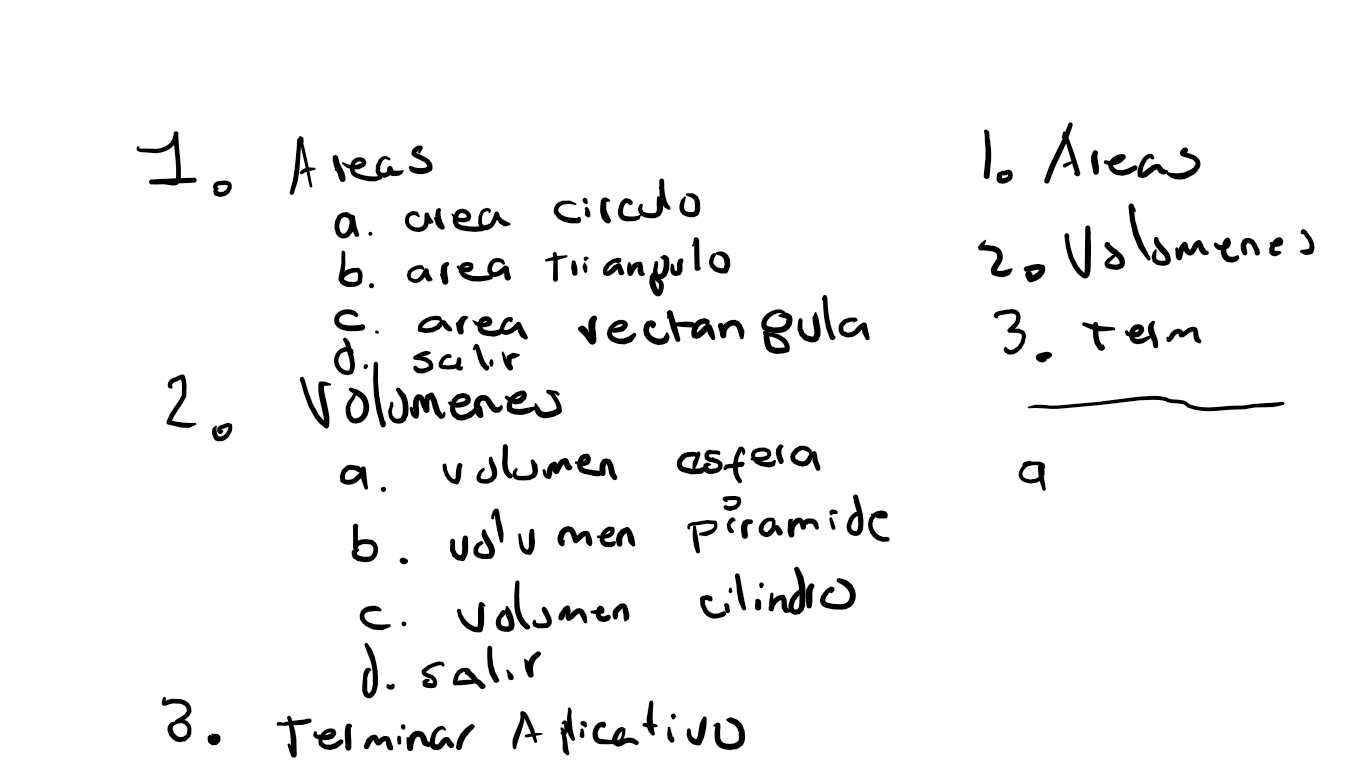 1. Areas
a. area circulo
b. area triangulo
c. area rectangula
d. salir
2. Volumenes
a. volumen esfera
b. volumen piramide
c. volumen cilindro
d. salir
3. Terminar Aplicativo
1. Areas
2. Volumenes
3. Term
a